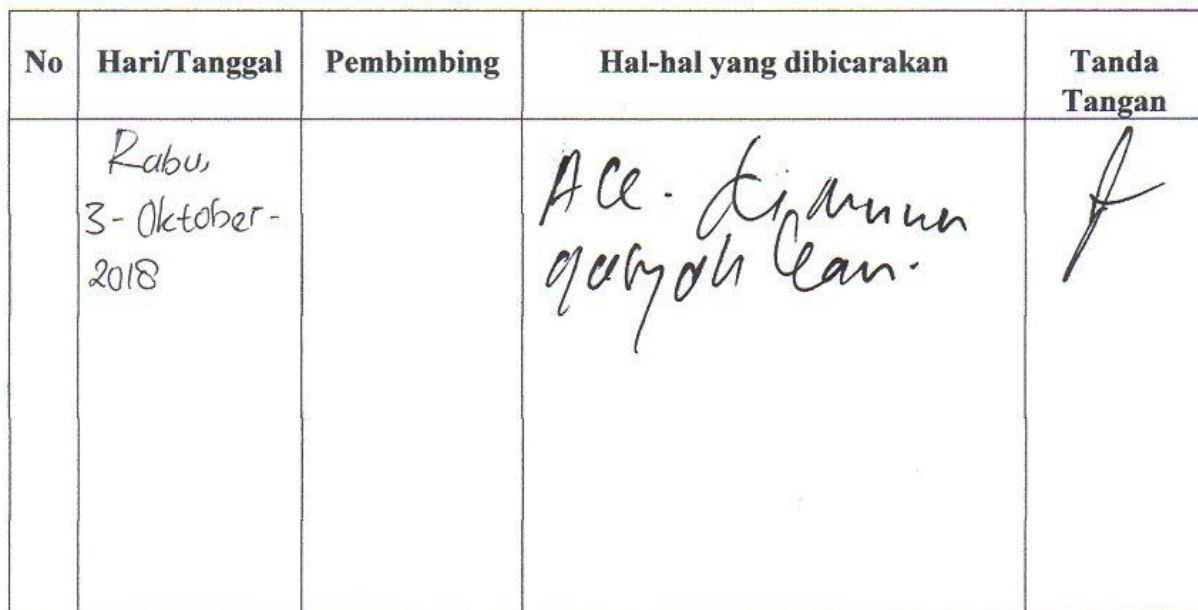 No Hari/Tanggal Pembimbing Hal-hal yang dibicarakan Tanda
Tangan
Rabu,
3-Oktober-
2018
Acc. dimuna
qasyah kan.